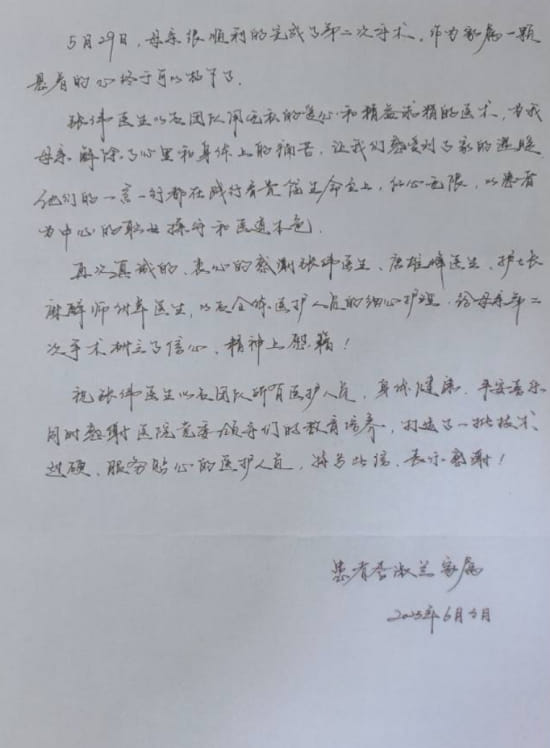 5月29日，母亲很顺利的完成了第二次手术，作为家属一颗
悬着的心终于可以放下了。
张伟医生以及团队用无私的爱心和精益求精的医术，为我
母亲解除了心里和身体上的痛苦，让我们感受到了家的温暖
他们的一言一行都在践行着生命至上，仁心无限，以患者
为中心的职业操守和医道本色。
再次真诚的、衷心的感谢张伟医生、唐雄峰医生、护士长
麻醉师付春医生，以及全体医护人员的细心护理，给母亲第二
次手术树立了信心，精神上慰籍！
祝张伟医生以及团队所有医护人员，身体健康，平安喜乐
同时感谢医院党委领导们的教育培养，打造了一批技术
过硬、服务贴心的医护人员，特写此信，表示感谢！
患者李淑兰家属
2025年6月5日